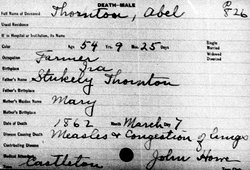 DEATH—MALE
Full Name of Deceased Thornton, Abel P 26
If in Hospital or Institution, its Name
Color Age: 54 Yrs. 9 Mos. 25 Days Single
Married
Widowed
Divorced
Occupation Farmer
Birthplace Ira
Father's Name Stukely Thornton
Father's Birthplace
Mother's Maiden Name Mary
Mother's Birthplace
Date of Death 1862 Month March - 7
Disease Causing Death Measles & Congestion of lungs
Contributing Disease
Medical Attendant John Howe
Castleton